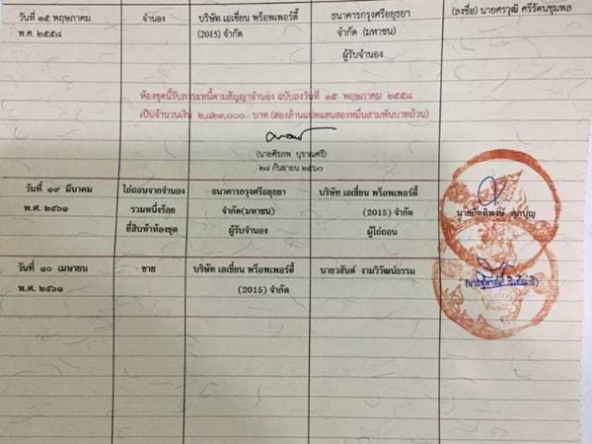 (ลงชื่อ) นายศรวุฒิ ศรีรัตนชุมพล
วันที่ ๑๕ พฤษภาคม
พ.ศ. ๒๕๕๘
จำนอง
บริษัท เอเชี่ยน พร็อพเพอร์ตี้
(2015) จำกัด
ธนาคารกรุงศรีอยุธยา
จำกัด (มหาชน)
ผู้รับจำนอง
ห้องชุดนี้รับภาระหนี้ตามสัญญาจำนอง ฉบับลงวันที่ ๑๕ พฤษภาคม ๒๕๕๘
เป็นจำนวนเงิน ๒,๘๒๓,๐๐๐.- บาท (สองล้านแปดแสนสองหมื่นสามพันบาทถ้วน)
๒๘ กันยายน ๒๕๖๐
วันที่ ๑๙ มีนาคม
พ.ศ. ๒๕๖๑
ไถ่ถอนจากจำนอง
รวมหนึ่งร้อย
ยี่สิบห้าห้องชุด
ธนาคารกรุงศรีอยุธยา
จำกัด(มหาชน)
ผู้รับจำนอง
บริษัท เอเชี่ยน พร็อพเพอร์ตี้
(2015) จำกัด
ผู้ไถ่ถอน
วันที่ ๑๐ เมษายน
พ.ศ. ๒๕๖๑
ขาย
บริษัท เอเชี่ยน พร็อพเพอร์ตี้
(2015) จำกัด
นายวสันต์ งามวิวัฒน์ธรรม